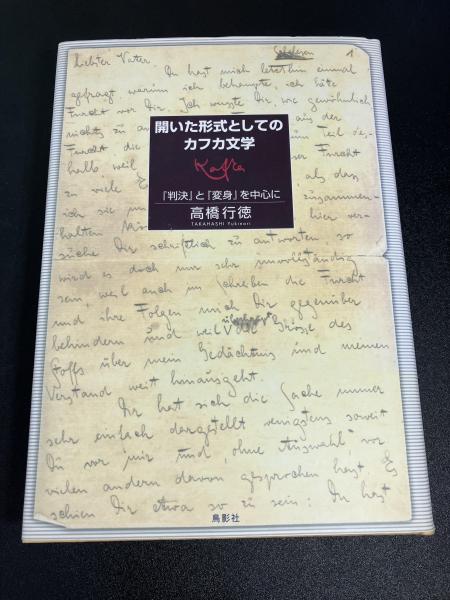 Schelesen
1
Liebster Vater,
Du hast mich letzthin einmal
gefragt, warum ich behaupte, ich hätte
Furcht vor Dir. Ich wusste Dir, wie gewöhnlich
nichts zu an aus der
Furcht die um Teil des-
halb, weil er Furcht
zu viele E als dass
ich sie im zusammen-
halten hier ver-
suche Dir schriftlich zu antworten, so
wird es doch nur sehr unvollständig
sein, weil auch im Schreiben die Furcht
und ihre Folgen mich Dir gegenüber
behindern und weil die Grösse des
Stoffs über mein Gedächtnis und meinen
Verstand weit hinausgeht.
Dir hat sich die Sache immer
sehr einfach dargestellt, wenigstens soweit
Du vor mir und, ohne Auswahl, vor
vielen andern davon gesprochen hast. Es
schien Dir etwa so zu sein: Du hast
開いた形式としての
カフカ文学
Kafka
『判決』と『変身』を中心に
高橋行徳
TAKAHASHI Yukinori
鳥影社